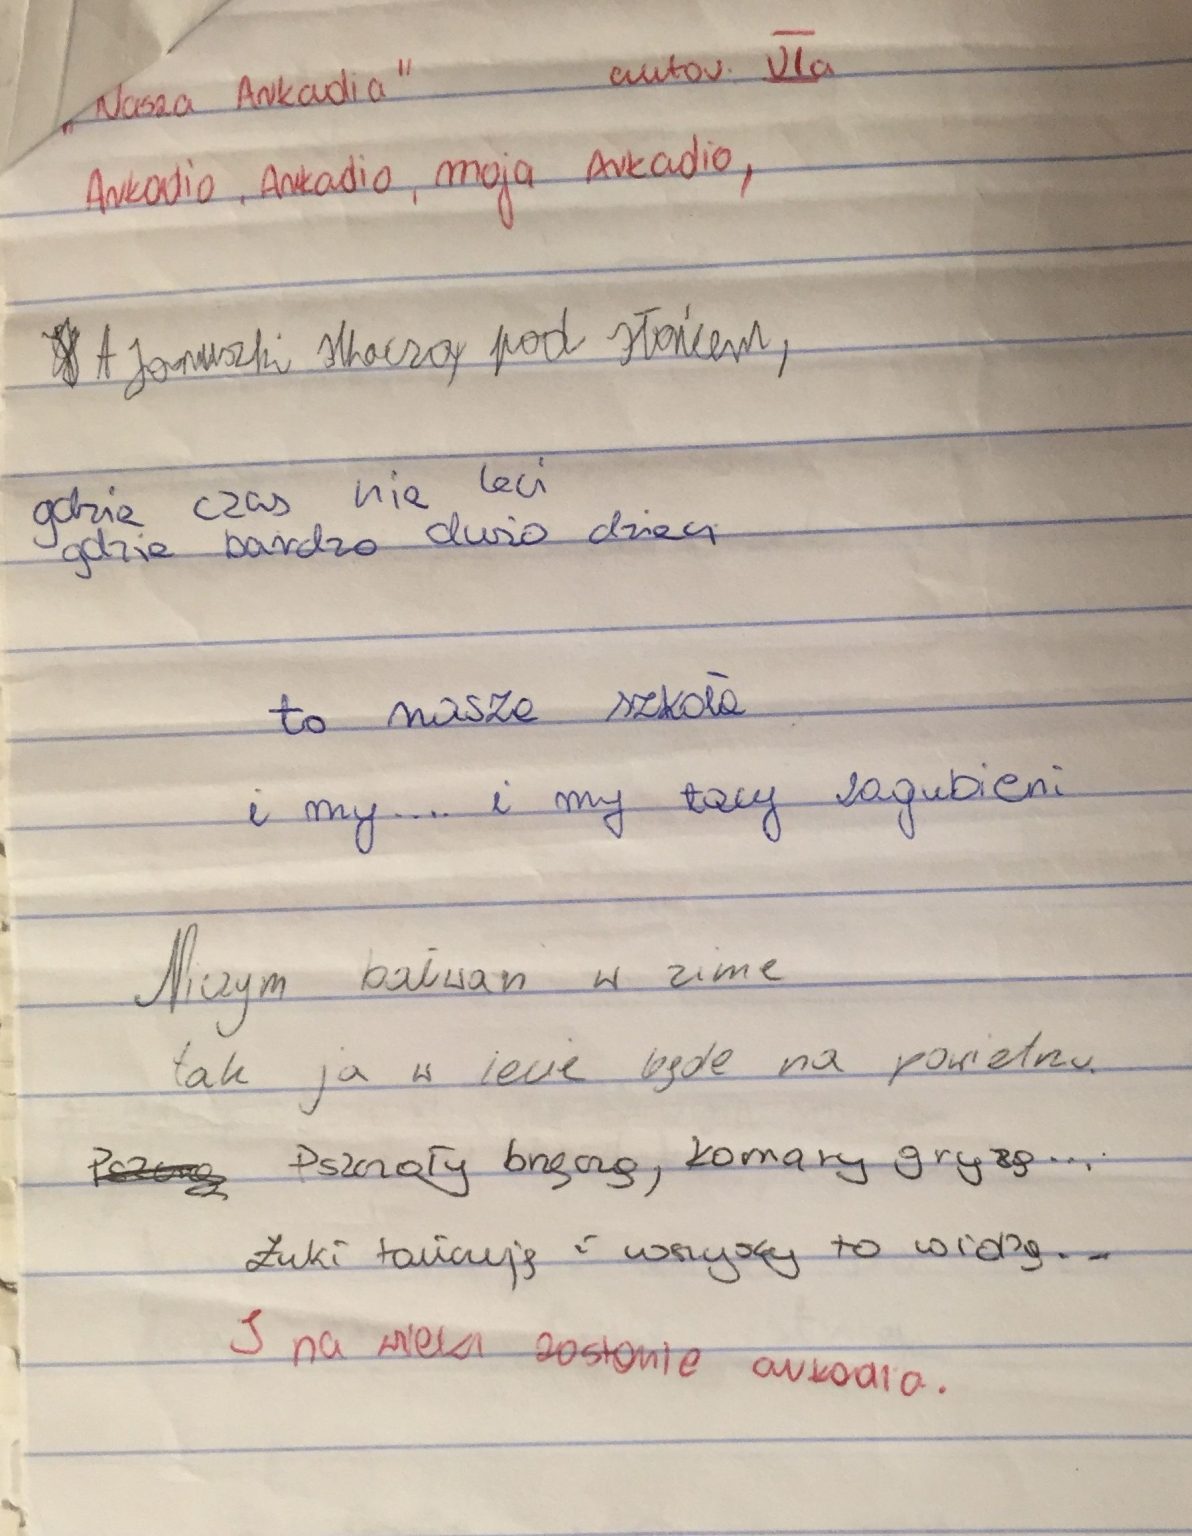 „Nasza Arkadia" autor. VIa
Arkadio, Arkadio, moja Arkadio,
A Januszki skaczą pod słońcem,
gdzie czas nie leci
gdzie bardzo dużo dzieci
to nasza szkoła
i my.... i my tacy zagubieni
Niczym bałwan w zime
tak ja w lecie będe na powietrzu.
Pszczoły brzęczą, komary gryzą...
Żuki tańcują i wszyscy to widzą...
I na wieki zostanie arkadia.